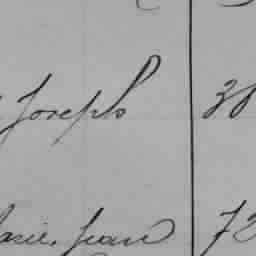 Joseph 38
Marie, Jean 73